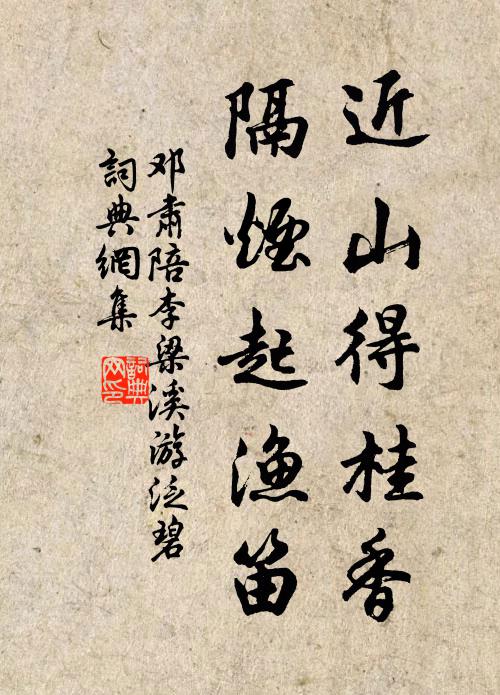 近山得桂香
隔煙起漁笛
邓肅陪李梁溪游泛碧
詞典網集
詞典网印